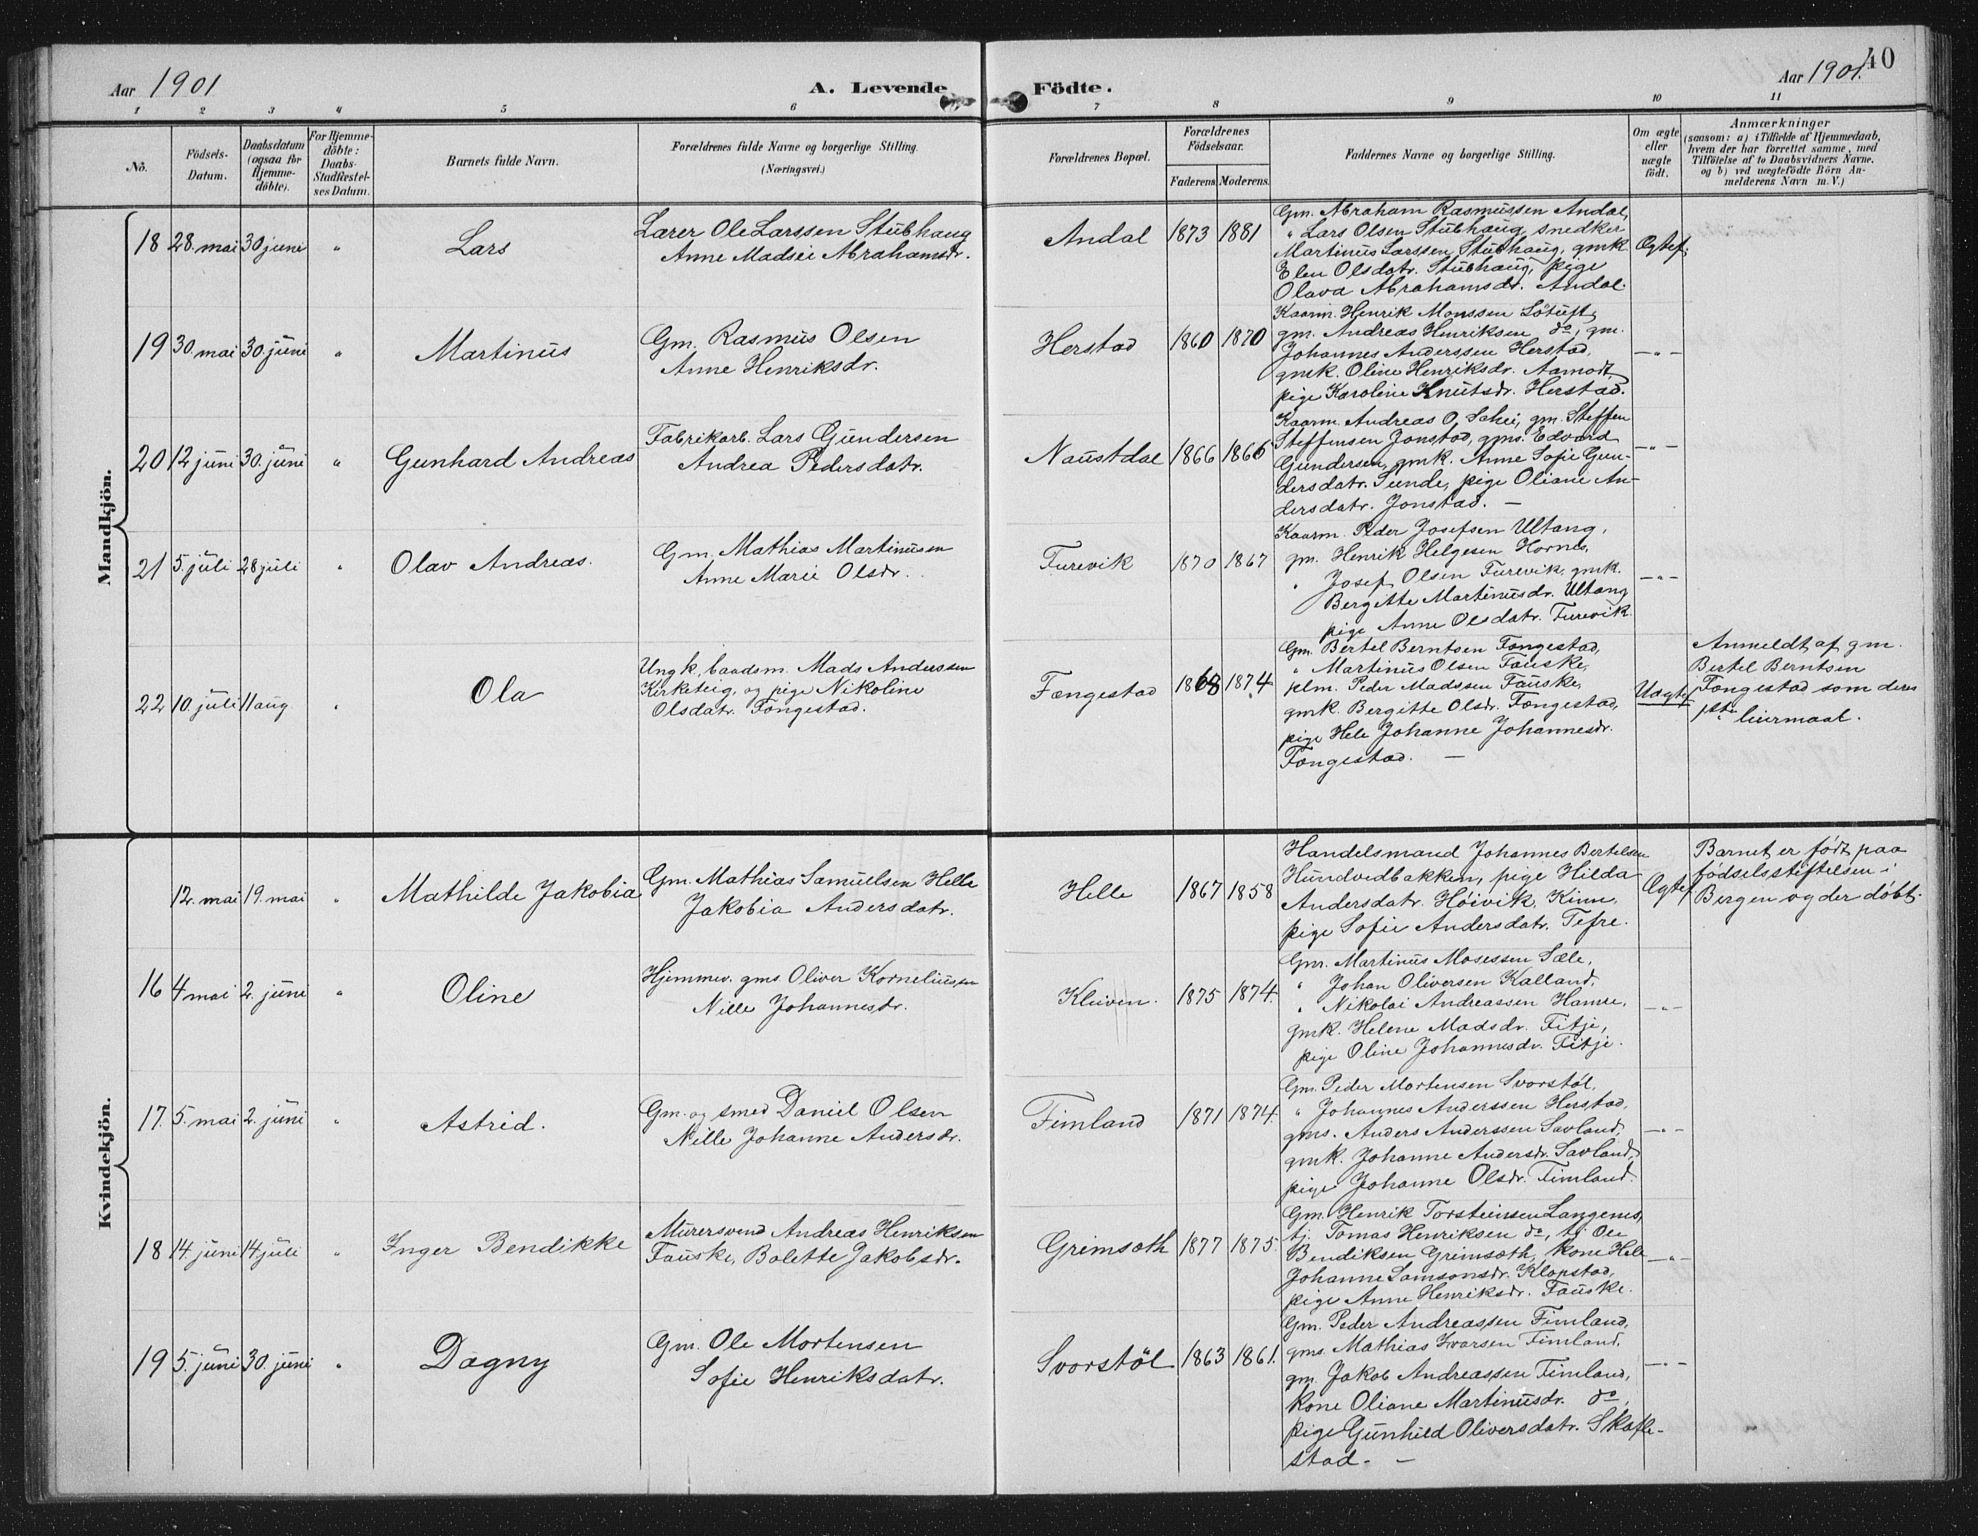 Aar 1901
A. Levende
Födte.
Aar 1901.
40
1 2 3 4 5 6 7 8 9 10 11
No.
Födsels-
Datum.
Daabsdatum
(ogsaa for
Hjemme-
döbte).
For Hjemme-
döbte:
Daabs-
Stadfæstel-
ses Datum.
Barnets fulde Navn.
Forældrenes fulde Navne og borgerlige Stilling.
(Næringsvei.)
Forældrenes Bopæl.
Forældrenes
Födselsaar.
Faderens Moderens.
Faddernes Navne og borgerlige Stilling.
Om ægte
eller
uægte
födt.
Anmærkninger
(saasom: a) i Tilfælde af Hjemmedaab,
hvem der har forrettet samme, med
Tilföielse af to Daabsvidners Navne,
og b) ved uægtefödte Börn An-
melderens Navn m. V.)
Mandkjön.
18 28. mai 30 juni " Lars
Lærer Ole Larssen Stubhaug
Anne Madsie Abrahamsdr.
Andal 1873 1881
Gm. Abraham Rasmussen Andal,
" Lars Olsen Stubhaug, snedker
Martinus Larssen Stubhaug, gmk
Elen Olsdatr. Stubhaug, pige
Olava Abrahamsdr. Andal.
Ægtef.
19 30. mai 30. juni " Martinus
Gm. Rasmus Olsen
Anne Henriksdr.
Herstad 1860 1870
Kaarm. Henrik Monssen Lötuft,
gm. Andreas Henriksen do, gm.
Johannes Anderssen Herstad,
gmk. Oline Henriksdr. Aamodt,
pige Karoline Knutsdr. Herstad.
—"—
20 12 juni 30. juni " Gunhard Andreas
Fabrikarb. Lars Gundersen
Andrea Pedersdatr.
Naustdal 1866 1866
Kaarm. Andreas O. Schei, gm. Steffen
Steffensen Jonstad, gms. Edvard
Gundersen, gmk. Anne Sofie Gun-
dersdatr. Sunde, pige Oliane An-
dersdatr. Jonstad. —
—"—
21 5. juli 28 juli " Olav Andreas.
Gm. Mathias Martinusen
Anne Marie Olsdr.
Furevik 1870 1867
Kaarm. Peder Josefsen Ultang,
gm. Henrik Helgesen Hornes,
" Josef Olsen Furevik, gmk.
Bergitte Martinusdr. Ultang
pige Anne Olsdatr. Furevik.
—"—
22 10. juli 11 aug " Ola
Ungk., baadsm. Mads Anderssen
Kirketeig, og pige Nikoline
Olsdatr. Fongestad.
Fængestad 1868 1874
Gm. Bertel Berntsen Fongestad,
" Martinus Olsen Fauske,
plm. Peder Madssen Fauske,
gmk. Bergitte Olsdr. Fongestad,
pige Hele Johanne Johannesdr.
Fongestad. —
Uægtef.
Anmeldt af gm.
Bertel Berntsen
Fongestad som deres
1ste leiermaal.
Kvindekjön.
12. mai 19. mai " Mathilde Jakobia
Gm. Mathias Samuelsen Helle
Jakobia Andersdatr.
Helle 1867 1858
Handelsmand Johannes Bertelsen
Hundvedbakken, pige Hilda
Andersdatr. Höivik, Kinn,
pige Sofie Andersdatr. Tefre.
Ægtef.
Barnet er födt paa
födselsstiftelsen i
Bergen og der döbt.
16 4 mai 2. juni " Oline
Hjemmev. gms. Oliver Korneliussen
Nille Johannesdr.
Kleiven. 1875 1874.
Gm. Martinus Mosessen Sæle,
" Johan Oliversen Kalland,
" Nikolai Andreassen Hamre,
gmk. Helene Madsdr. Fitje,
pige Oline Johannesdr. Fitje.
—"—
17. 5. mai 2. juni " Astrid.
Gm. og smed Daniel Olsen
Nille Johanne Andersdr.
Fimland 1871 1874.
Gm. Peder Mortensen Svorstöl,
" Johannes Anderssen Herstad,
gms. Anders Anderssen Savland,
gmk. Johanne Andersdr. Savland,
pige Johanne Olsdr. Fimland.
—"—
18 14. juni 14 juli " Inger Bendikke
Murersvend Andreas Henriksen
Fauske, Bolette Jakobsdr.
Grimsæth 1877 1875.
Gm. Henrik Torsteinsen Langenes,
tj. Tomas Henriksen do, tj. Ole
Bendiksen Grimsæth, kone Hele
Johanne Samsonsdr. Klopstad,
pige Anne Henriksdr. Fauske.
—"—
19 5. juni 30. juni " Dagny
Gm. Ole Mortensen
Sofie Henriksdatr.
Svorstöl 1863 1861.
Gm. Peder Andreassen Fimland,
gms. Mathias Ivarsen Fimland,
gm. Jakob Andreassen Fimland,
kone Oliane Martinusdr. do,
pige Gunhild Oliversdatr. Skafle-
stad. —
—"—